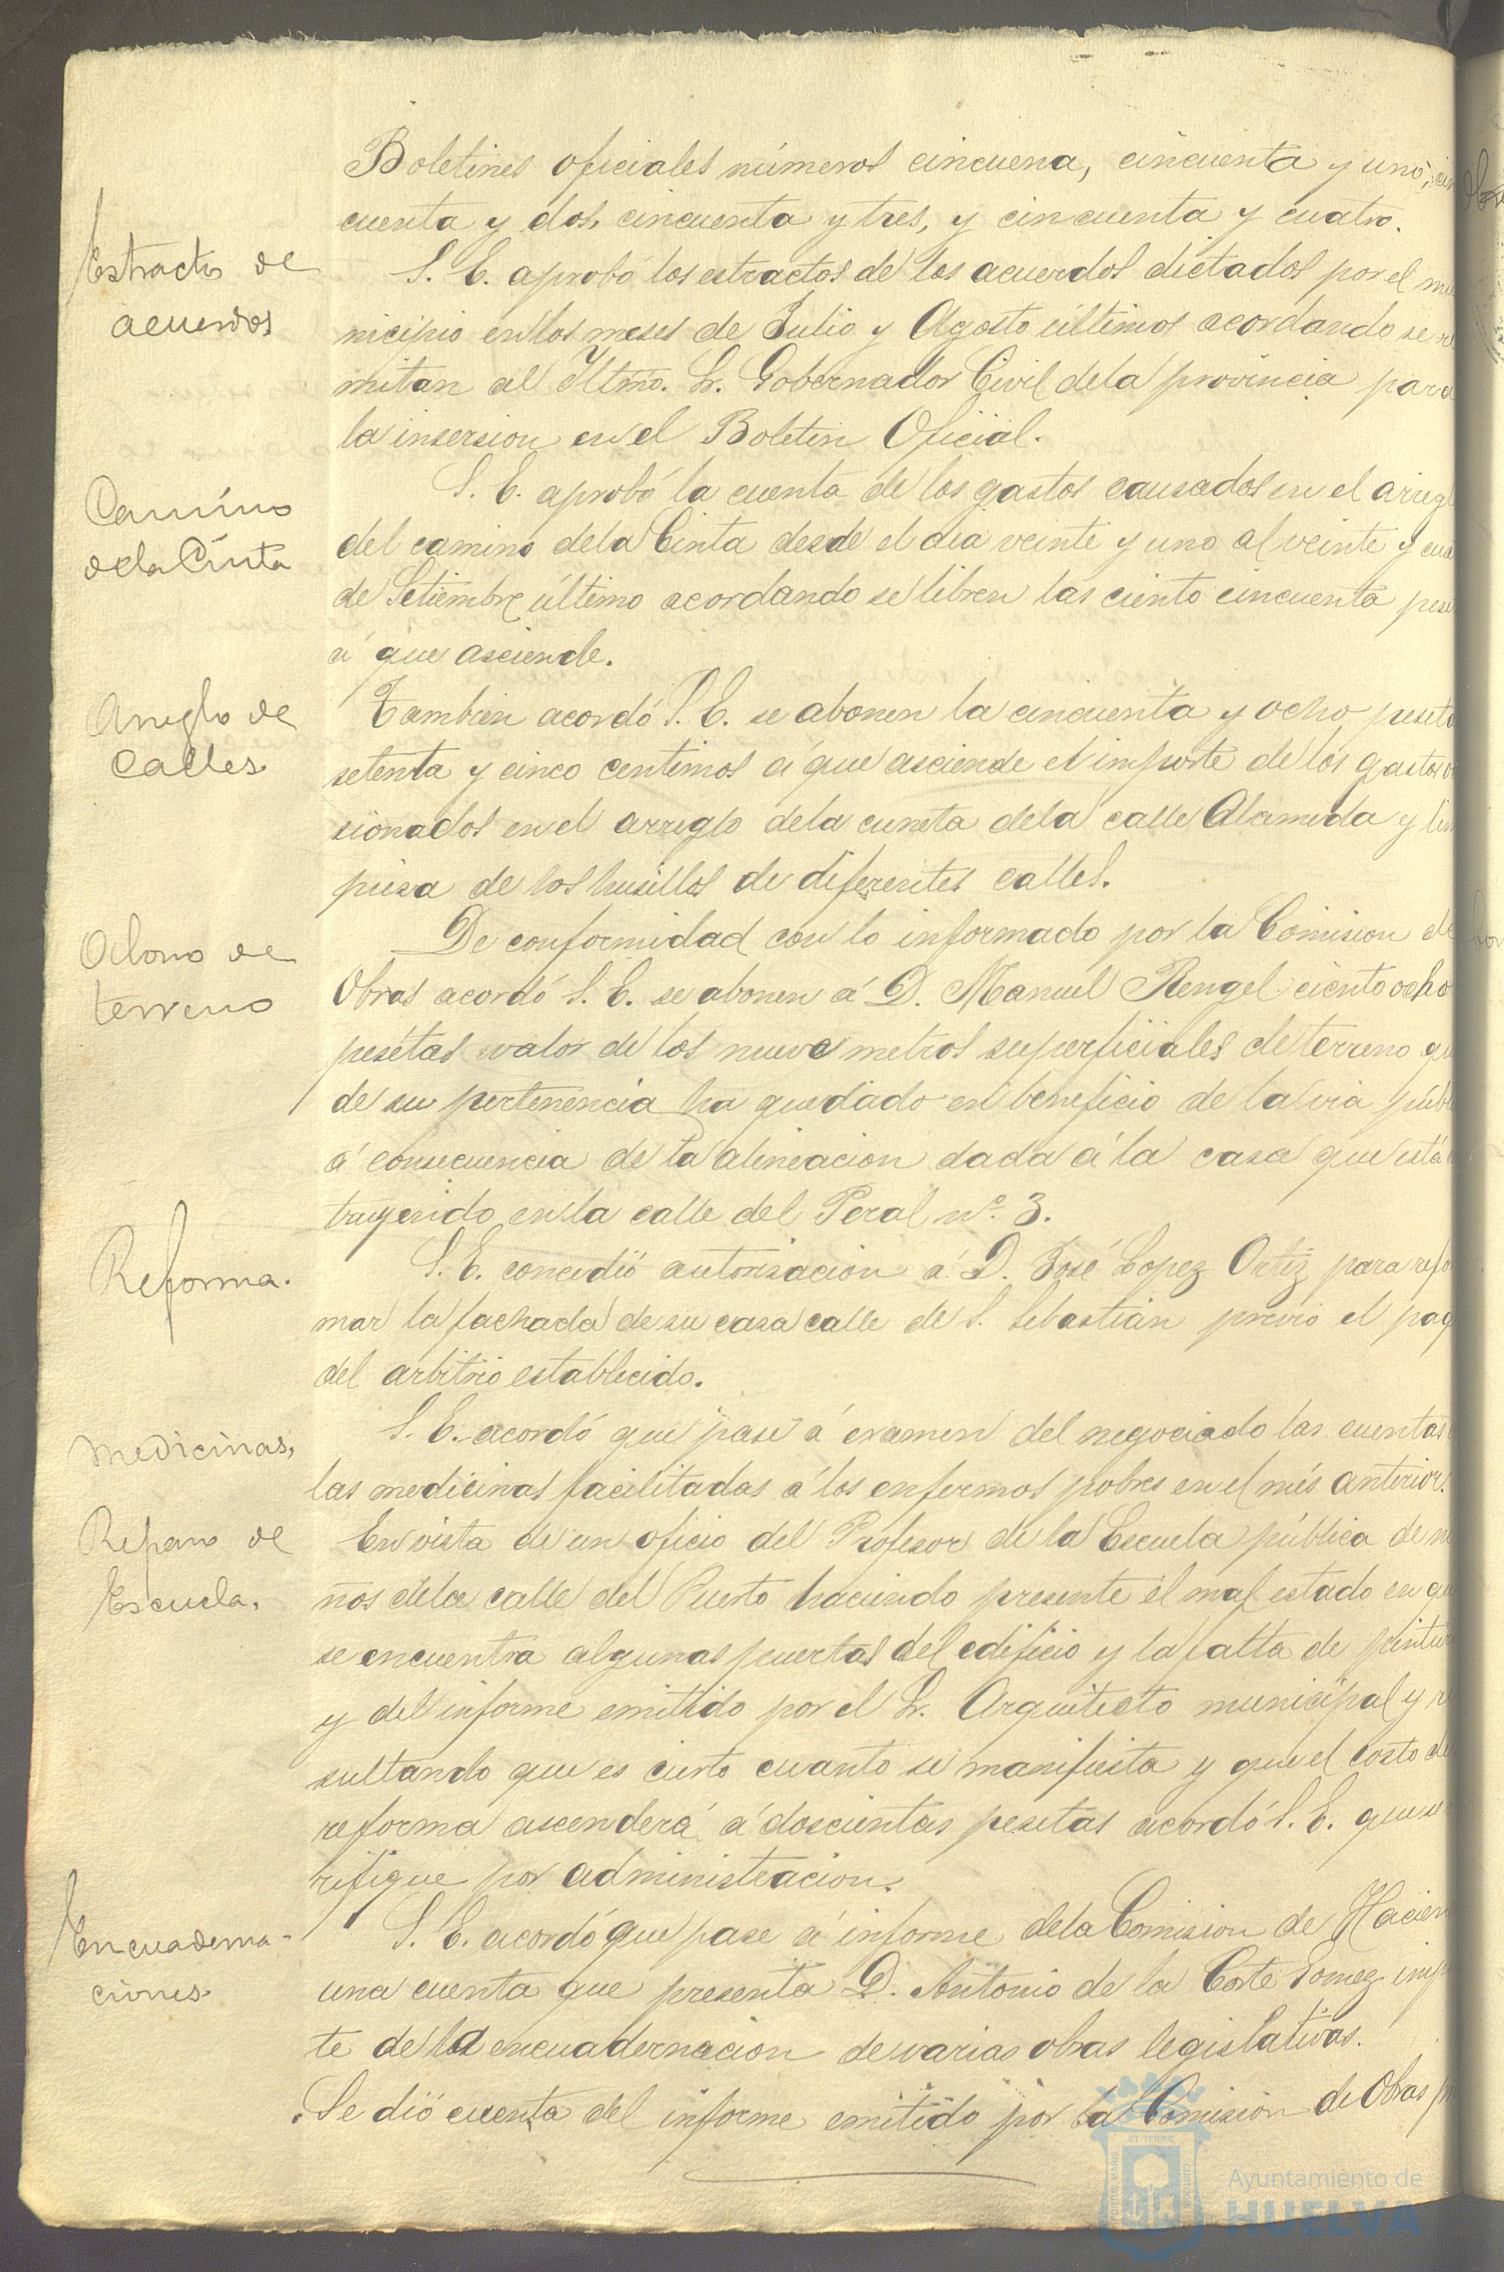 Boletines oficiales números cincuena, cincuenta y uno, cin
cuenta y dos, cincuenta y tres, y cincuenta y cuatro.
Estracto de
acuerdos
S. E. aprobó los estractos de los acuerdos dictados por el mu
nicipio en los meses de Julio y Agosto últimos acordando se re
mitan al Iltmo. Sr. Gobernador Civil de la provincia para
la insersion en el Boletin Oficial.
Camino
de la Cinta
S. E. aprobó la cuenta de los gastos causados en el arregl
del camino de la Cinta desde el dia veinte y uno al veinte y cua
de Setiembre último acordando se libren las ciento cincuenta pese
á que asciende.
Arreglo de
Calles
Tambien acordó S. E. se abonen la cincuenta y ocho peseta
setenta y cinco centimos á que asciende el importe de los gastos o
sionados en el arreglo de la cuneta de la calle Alameda y lim
pieza de los husillos de diferentes calles.
Abono de
terreno
De conformidad con lo informado por la Comision de
Obras acordó S. E. se abonen á D. Manuel Rengel ciento ocho
pesetas valor de los nueve metros superficiales de terreno qu
de su pertenencia ha quedado en beneficio de la via públ
á consecuencia de la alineacion dada á la casa que está
truyendo en la calle del Peral nº 3.
Reforma.
S. E. concedió autorisacion á D. José Lopez Ortiz para refo
mar la fachada de su casa calle de S. Sebastian previo el pag
del arbitrio establecido.
Medicinas,
S. E. acordó que pase á examen del negociado las cuentas
las medicinas facilitadas á los enfermos pobres en el més anterior.
Reparo de
Escuela.
En vista de un oficio del Profesor de la Escuela pública de ni
ños de la calle del Puerto haciendo presente el mal estado en qu
se encuentra algunas puertas del edificio y la falta de pintur
y del informe emitido por el Sr. Arquitecto municipal y re
sultando que es cierto cuanto se manifiesta y que el costo de
reforma ascenderá á doscientas pesetas acordó S. E. que se
rifique por administracion.
Encuaderna-
ciones
S. E. acordó que pase á informe de la Comision de Hacien
una cuenta que presenta D. Antonio de la Corte Gomez imp
te de la encuadernacion de varias obras legislativas.
Se dió cuenta del informe emitido por la Comision de Obras p
Ayuntamiento de
HUELVA